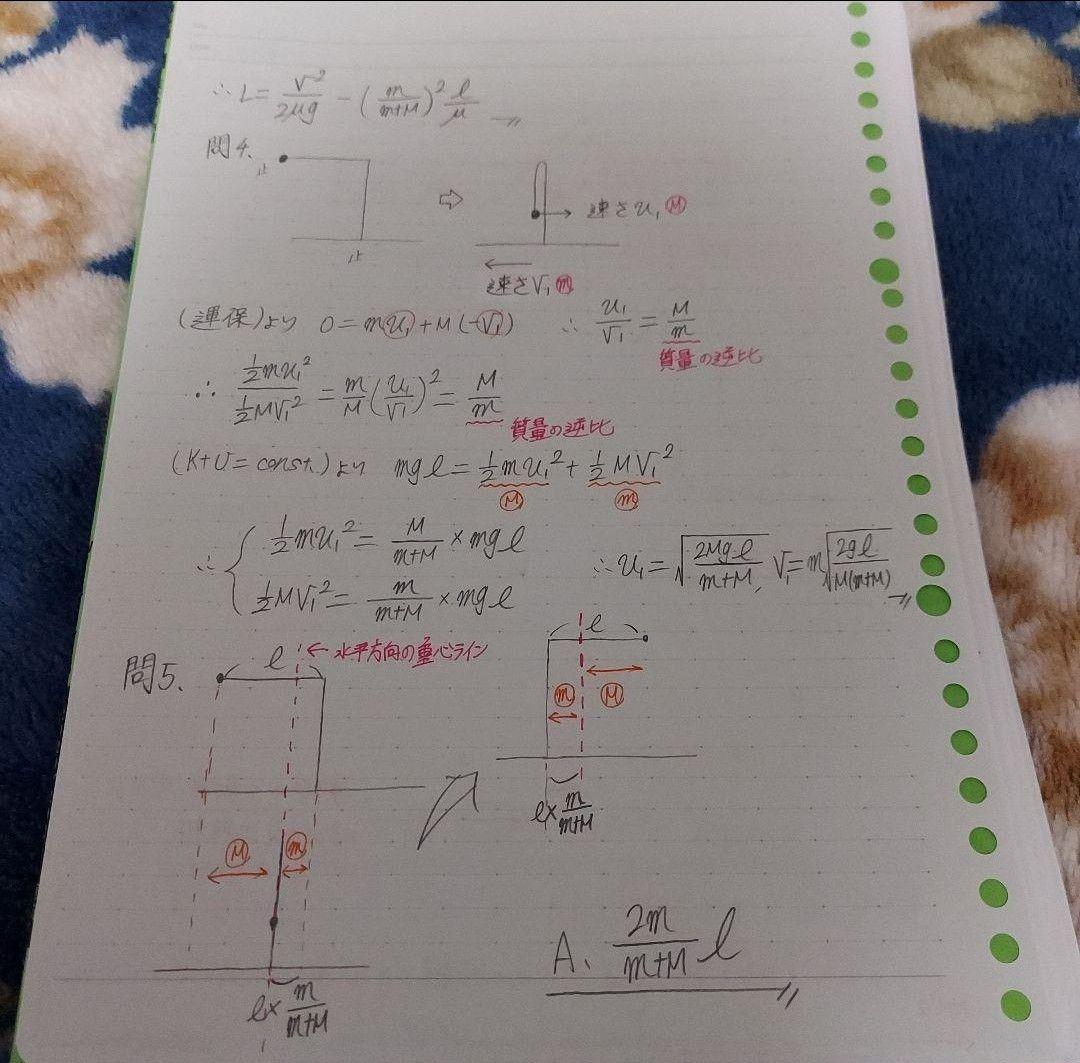 ∴ L = v²/2μg − (m/m+M)² l/μ 〃
問4.
止
⇨
速さu₁ Ⓜ
止
速さV₁ ⓜ
(運保)より 0 = mu₁ + M(−V₁) ∴ u₁/V₁ = M/m
質量の逆比
∴ ½mu₁² / ½MV₁² = m/M (u₁/V₁)² = M/m
質量の逆比
(K+U = const.)より mgl = ½mu₁² + ½MV₁²
Ⓜ ⓜ
∴ { ½mu₁² = M/m+M × mgl
½MV₁² = m/m+M × mgl
∴ u₁ = √(2Mgl/m+M), V₁ = m√(2gl/M(m+M)) 〃
問5.
l ← 水平方向の重心ライン
l
ⓜ Ⓜ
l× m/m+M
Ⓜ ⓜ
l× m/m+M
A. 2m/m+M l 〃